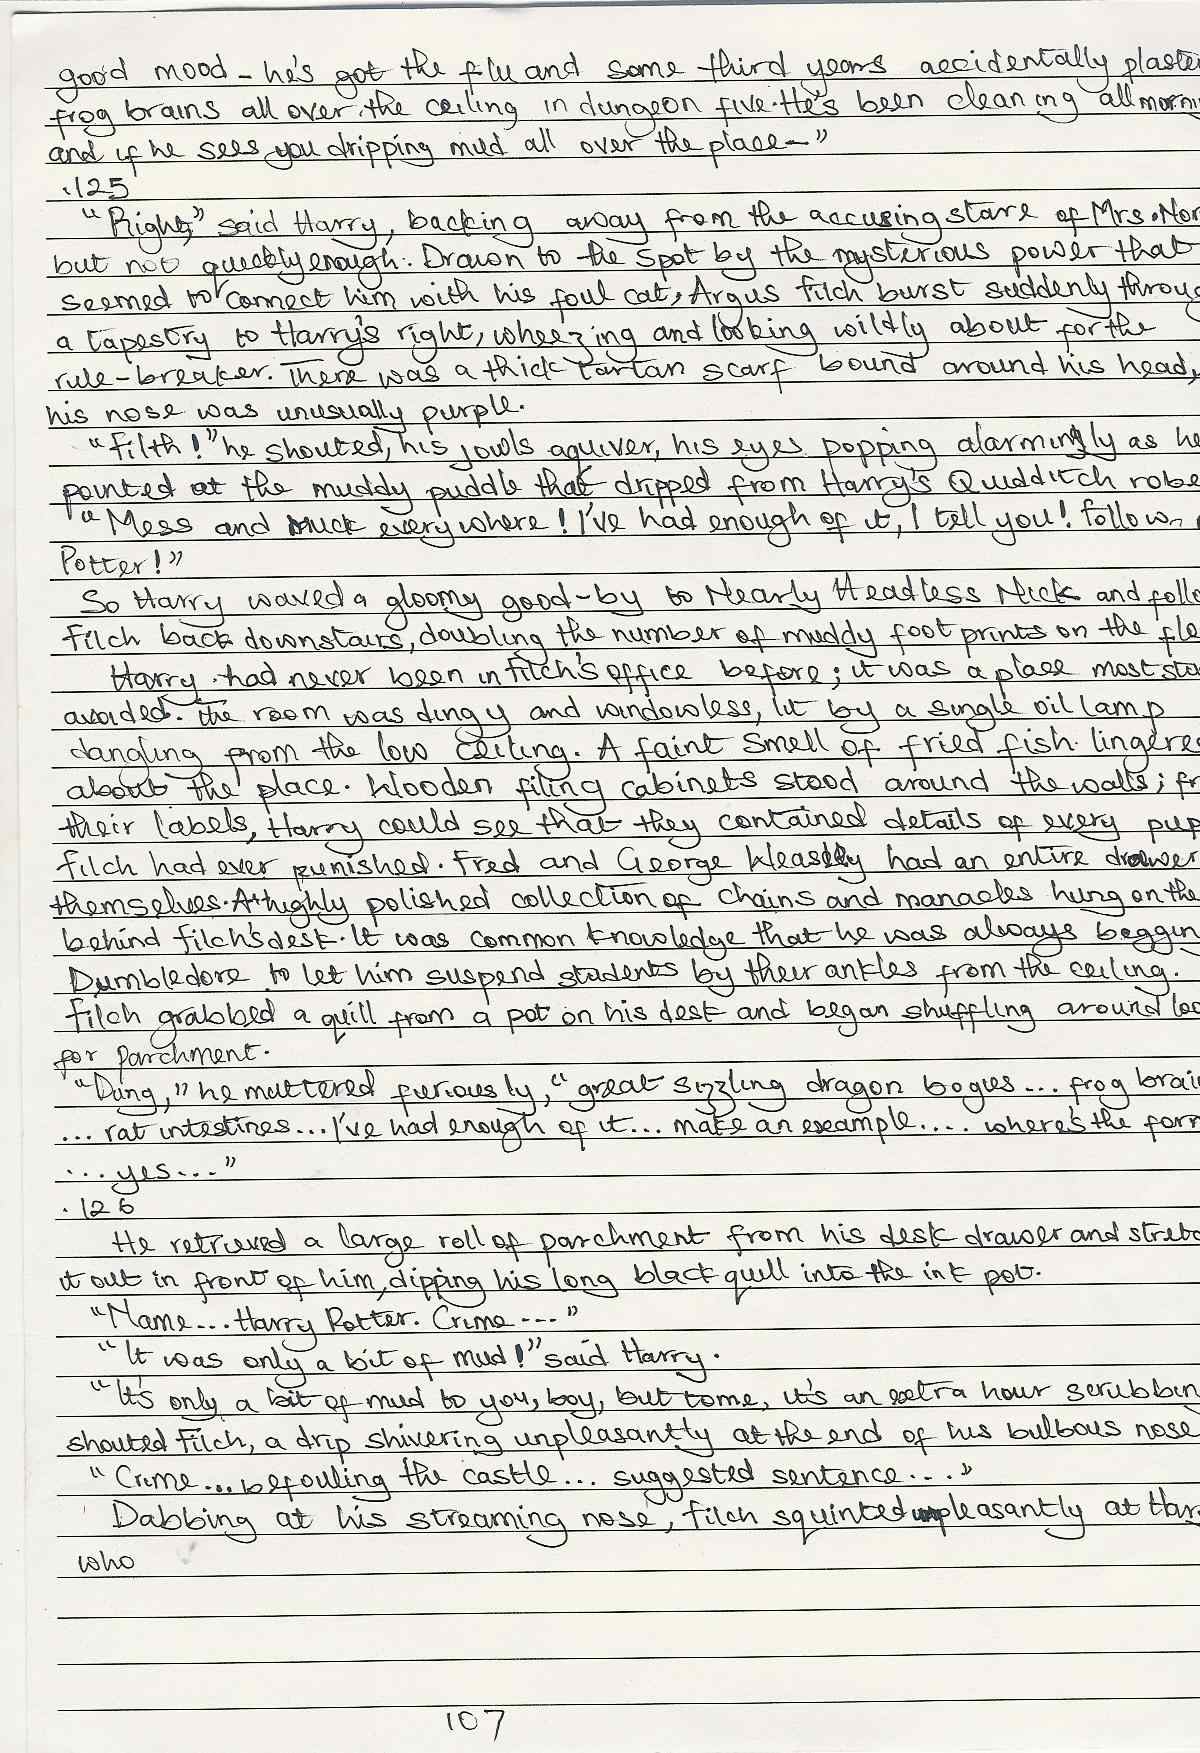 good mood - he's got the flu and some third years accidentally plaste
frog brains all over the ceiling in dungeon five. He's been cleaning all morni
and if he sees you dripping mud all over the place-"
.125
"Right," said Harry, backing away from the accusing stare of Mrs. Nor
but not quickly enough. Drawn to the spot by the mysterious power that
seemed to connect him with his foul cat, Argus Filch burst suddenly throug
a tapestry to Harry's right, wheezing and looking wildly about for the
rule-breaker. There was a thick tartan scarf bound around his head,
his nose was unusually purple.
"Filth!" he shouted, his jowls aquiver, his eyes popping alarmingly as he
pointed at the muddy puddle that dripped from Harry's Quidditch robe
"Mess and muck everywhere! I've had enough of it, I tell you! follow
Potter!"
So Harry waved a gloomy good-by to Nearly Headless Nick and follo
Filch back downstairs, doubling the number of muddy foot prints on the flo
Harry had never been in filch's office before; it was a place most stu
avoided. The room was dingy and windowless, lit by a single oil lamp
dangling from the low ceiling. A faint smell of fried fish lingered
about the place. Wooden filing cabinets stood around the walls; fr
their labels, Harry could see that they contained details of every pup
filch had ever punished. Fred and George Weasley had an entire drawer
themselves. A highly polished collection of chains and manacles hung on the
behind filch's desk. It was common knowledge that he was always beggin
Dumbledore to let him suspend students by their ankles from the ceiling.
Filch grabbed a quill from a pot on his desk and began shuffling around loo
for parchment.
"Dung," he muttered furiously, "great sizzling dragon bogies... frog brai
... rat intestines... I've had enough of it... make an example.... where's the form
... yes..."
.126
He retrieved a large roll of parchment from his desk drawer and stretc
it out in front of him, dipping his long black quill into the ink pot.
"Name... Harry Potter. Crime..."
"It was only a bit of mud!" said Harry.
"It's only a bit of mud to you, boy, but to me, it's an extra hour scrubbin
shouted Filch, a drip shivering unpleasantly at the end of his bulbous nose
"Crime... befouling the castle... suggested sentence...."
Dabbing at his streaming nose, Filch squinted unpleasantly at Har
who
107